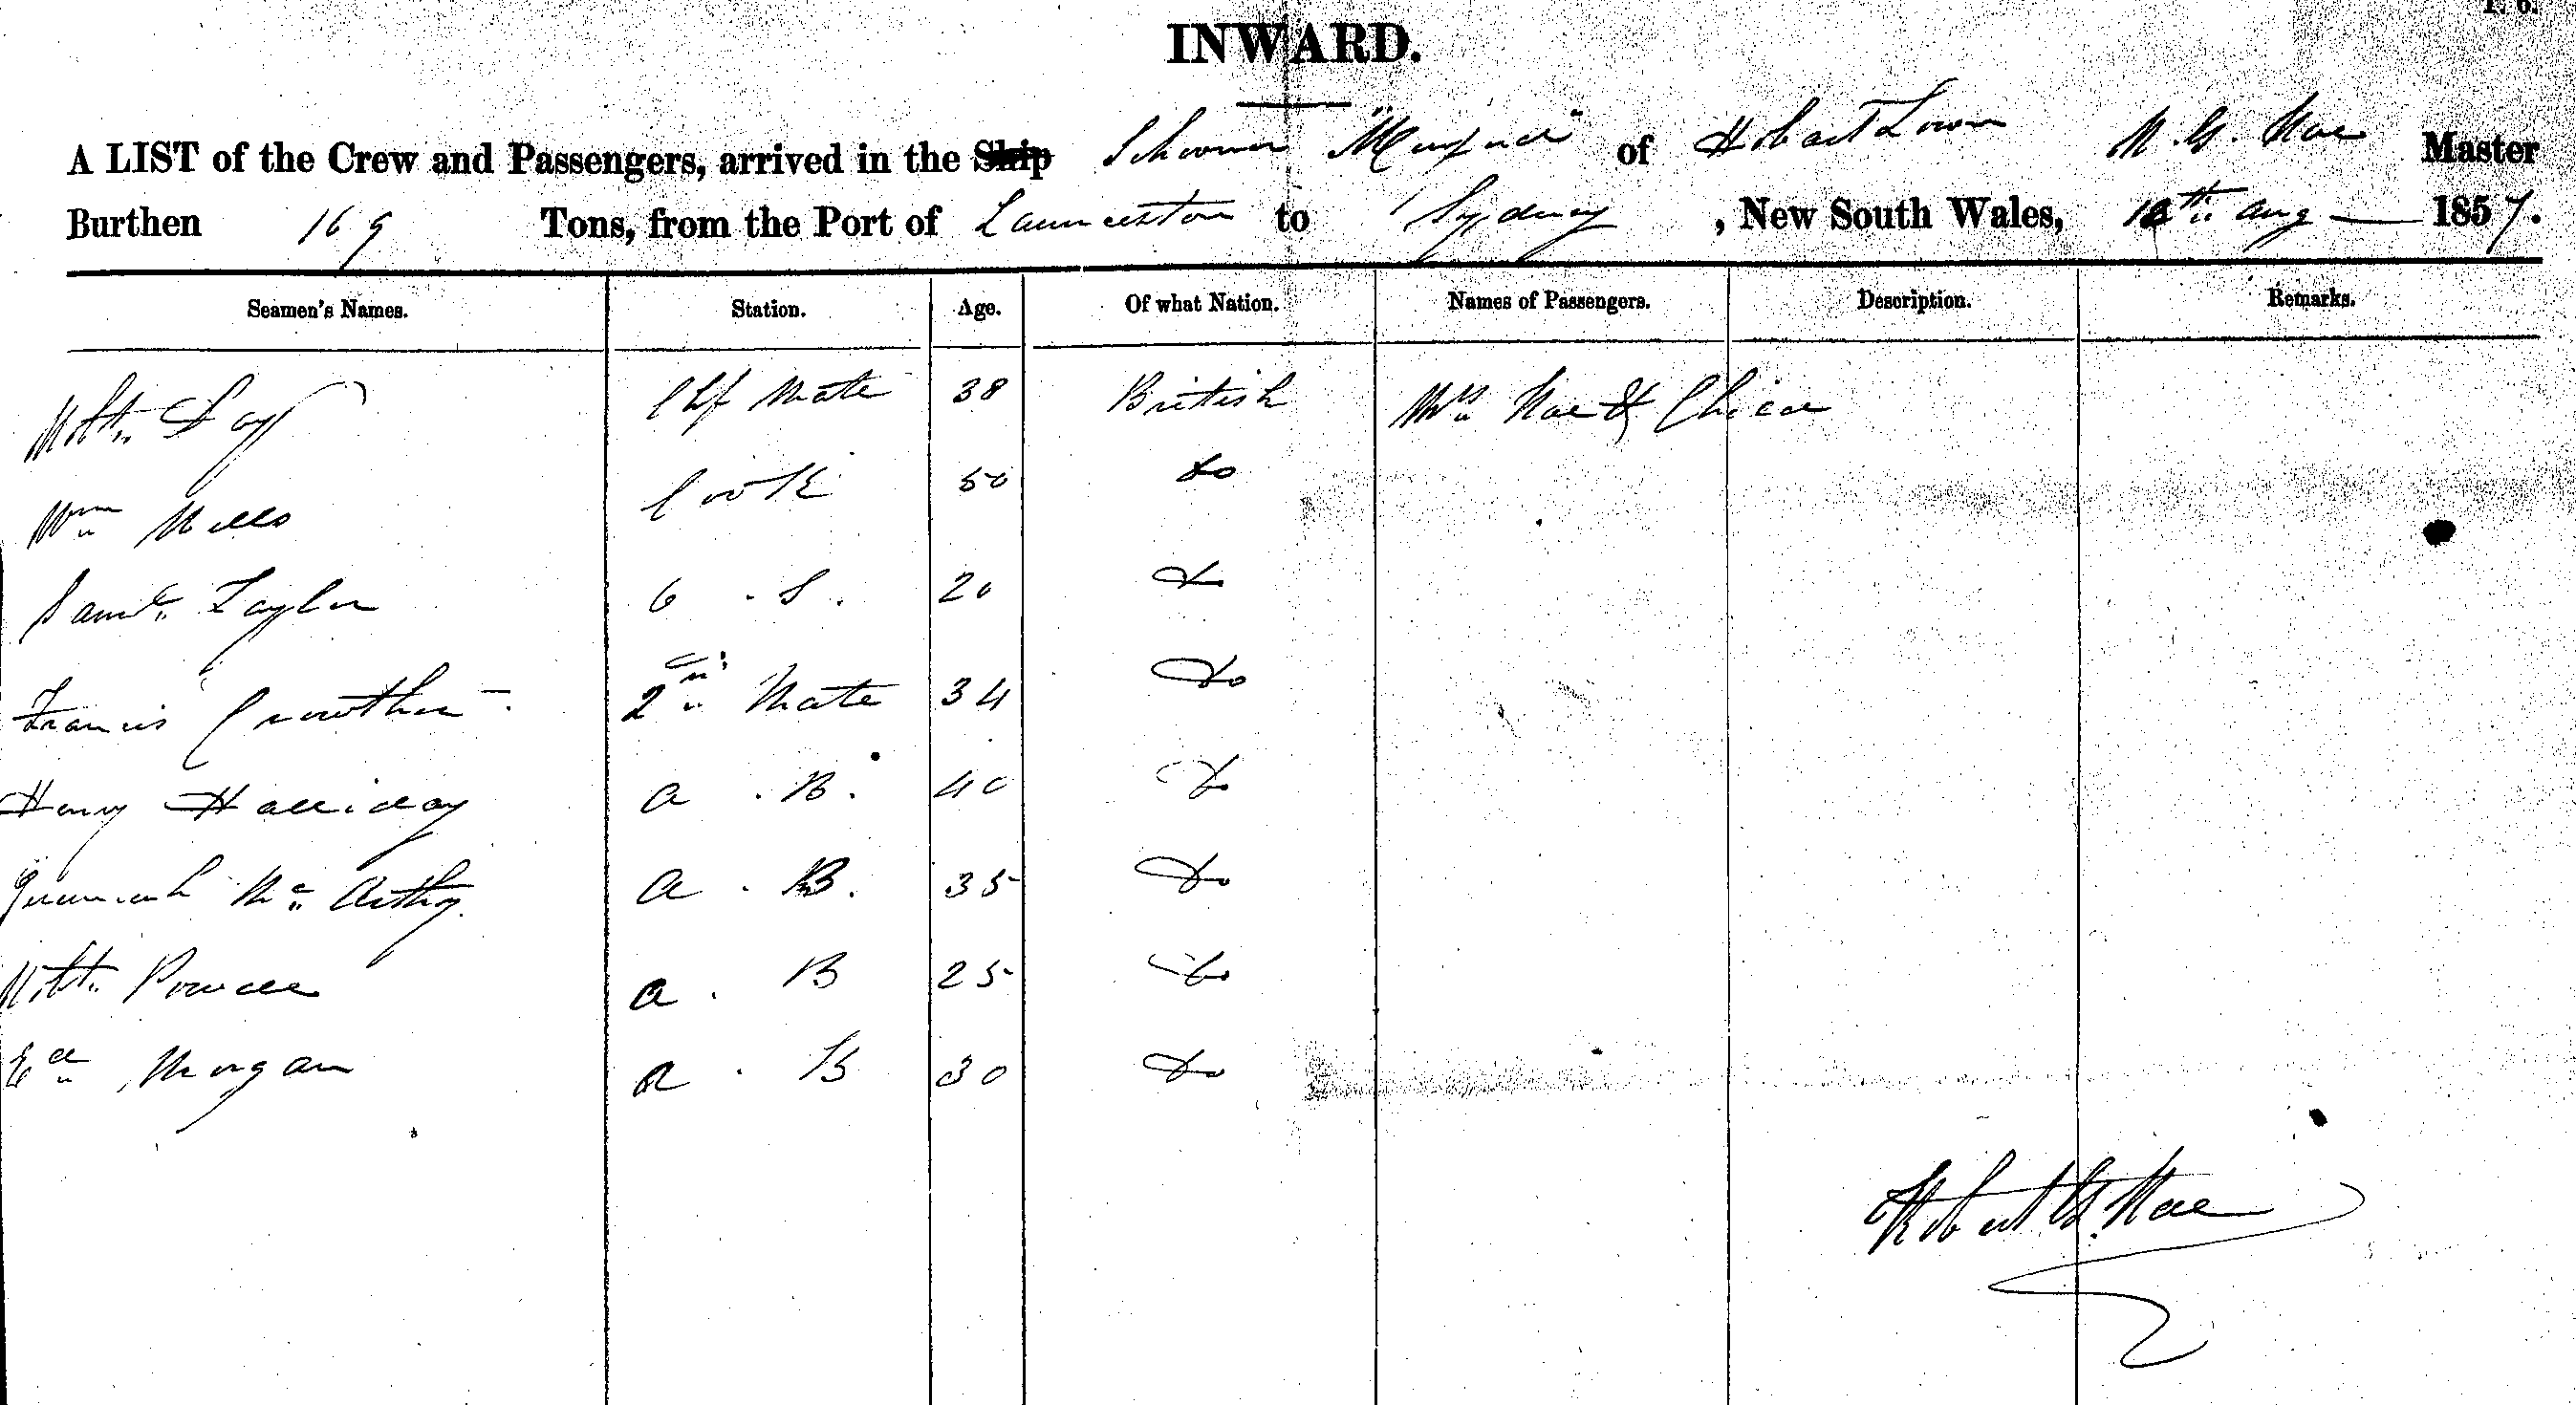 INWARD.
A LIST of the Crew and Passengers, arrived in the Ship Schooner of Hobart Town Master
Burthen 169 Tons, from the Port of Launceston to Sydney, New South Wales, Aug 1857.
Seamen's Names. Station. Age. Of what Nation. Names of Passengers. Description. Remarks.
Robt. Chf Mate 38 British Mrs
Wm Cook 50 Do
Saml. Taylor O.S. 20 Do
Francis Crowther 2nd Mate 34 Do
Henry Halliday A.B. 40 Do
Jeremiah Mc Arthy A.B. 35 Do
Robt. Powell A.B 25 Do
Ed Morgan A.B 30 Do
Robert